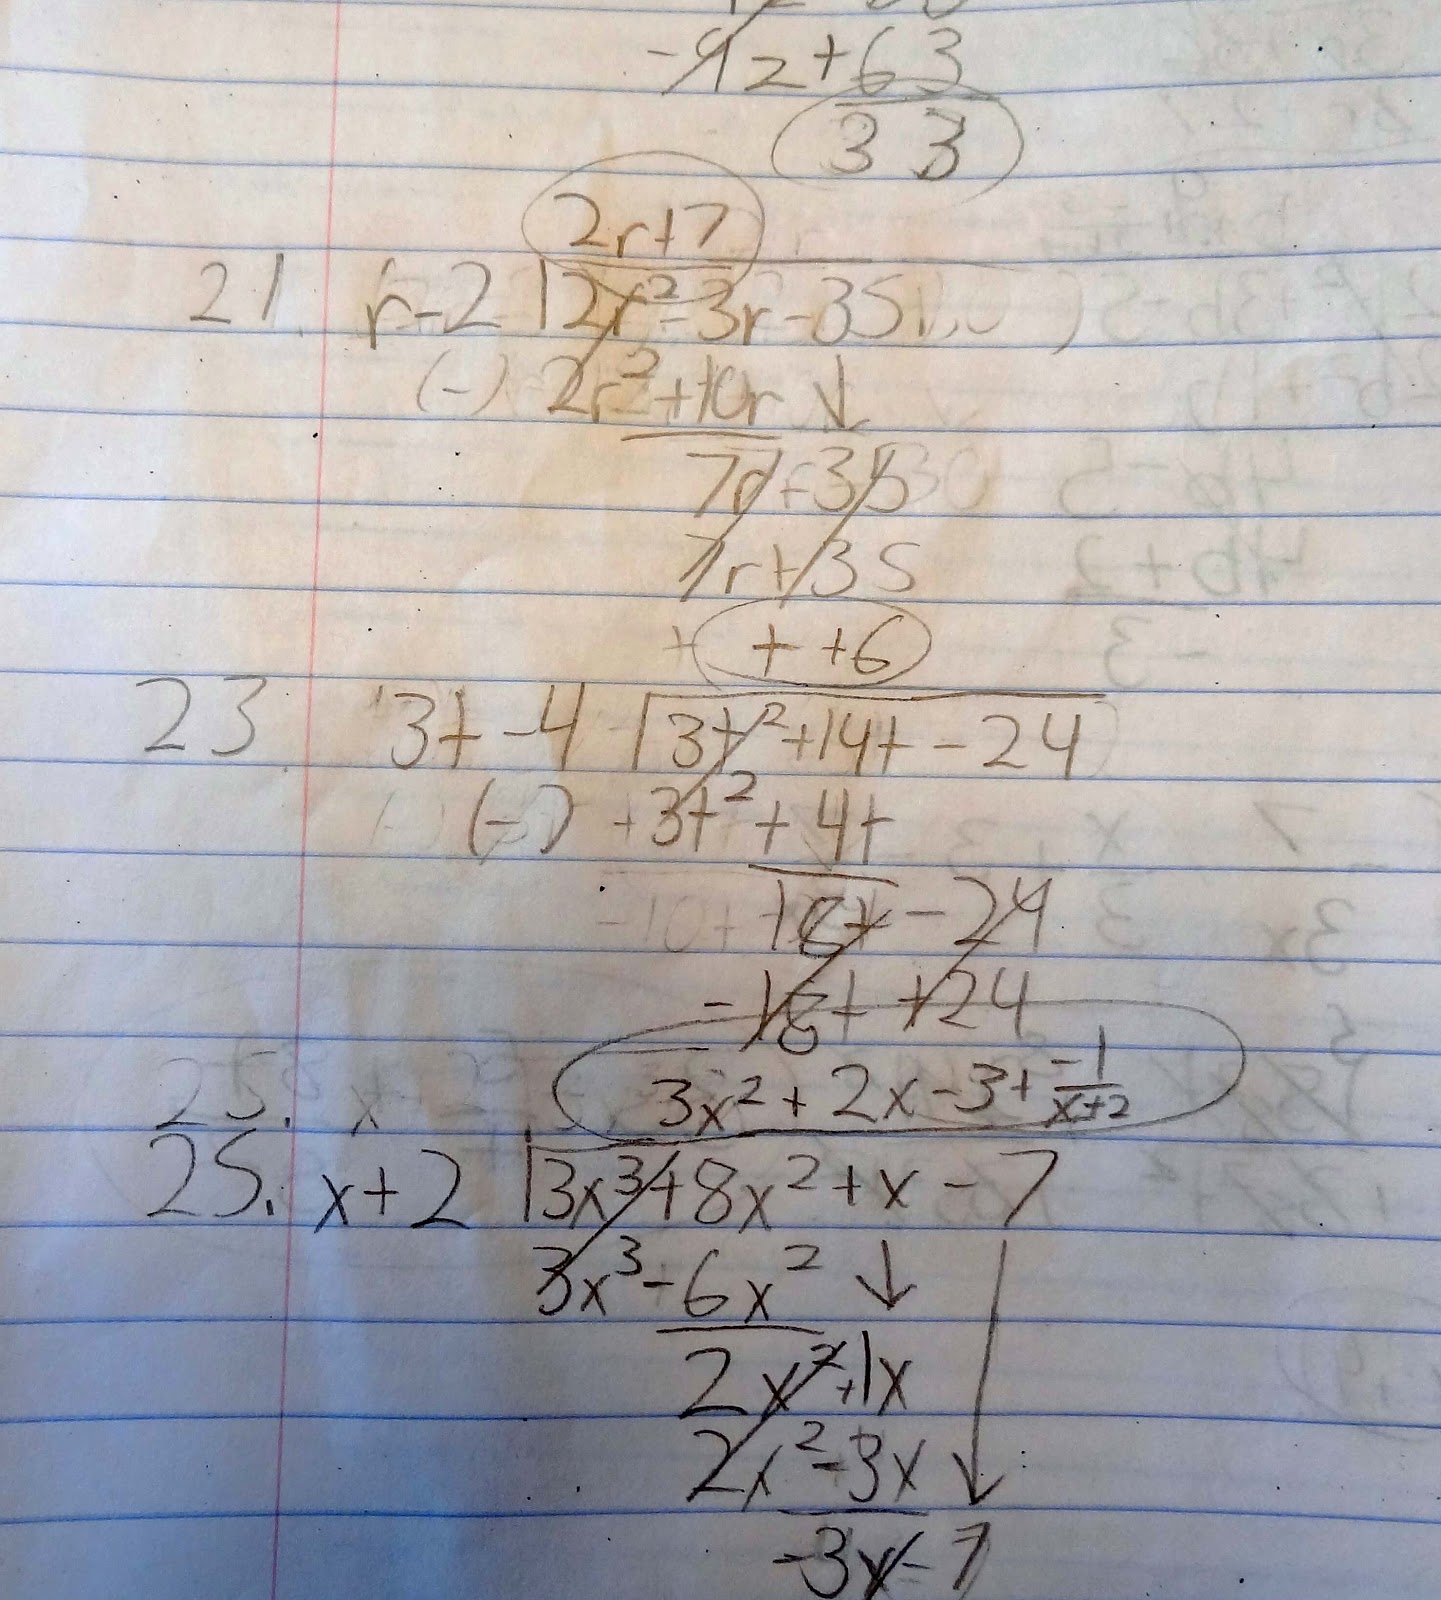 -9z+63
33
2r+7
21. r-2 |2r²-3r-35
(-) 2r²+10r ↓
7r-35
7r+35
+ t+6
23. 3t-4 |3t²+14t-24
(-) +3t²+4t
18t-24
-18t+24
3x²+2x-3+-1/x+2
25. x+2 |3x³+8x²+x-7
3x³-6x² ↓
2x²+1x
2x²-3x
-3x-7